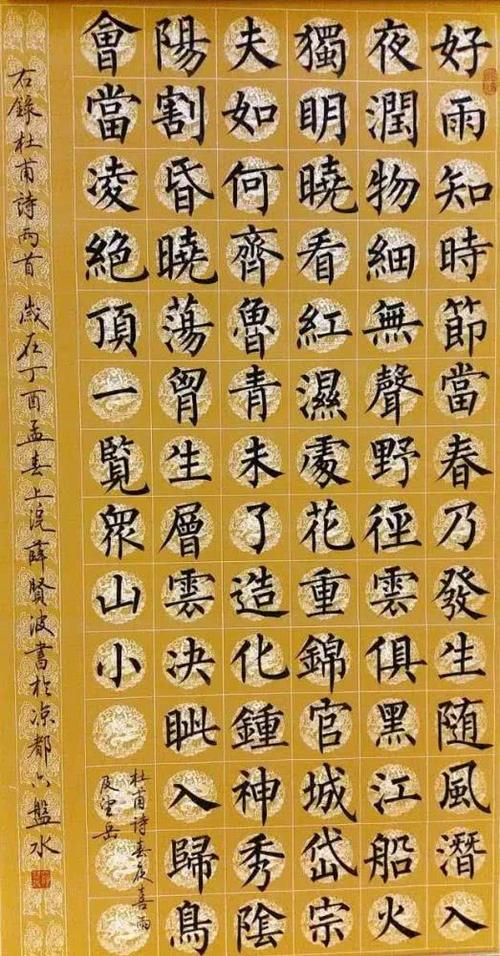 好雨知時節當春乃發生随風潛入
夜潤物細無聲野徑雲俱黑江船火
獨明曉看紅濕處花重錦官城岱宗
夫如何齊魯青未了造化鍾神秀陰
陽割昏曉蕩胷生層雲决眦入歸鳥
會當凌絕頂一覽眾山小
杜甫詩春夜喜雨
及望岳
右錄杜甫詩兩首 歲在丁酉孟春上浣薛賢波書於凉都六盤水